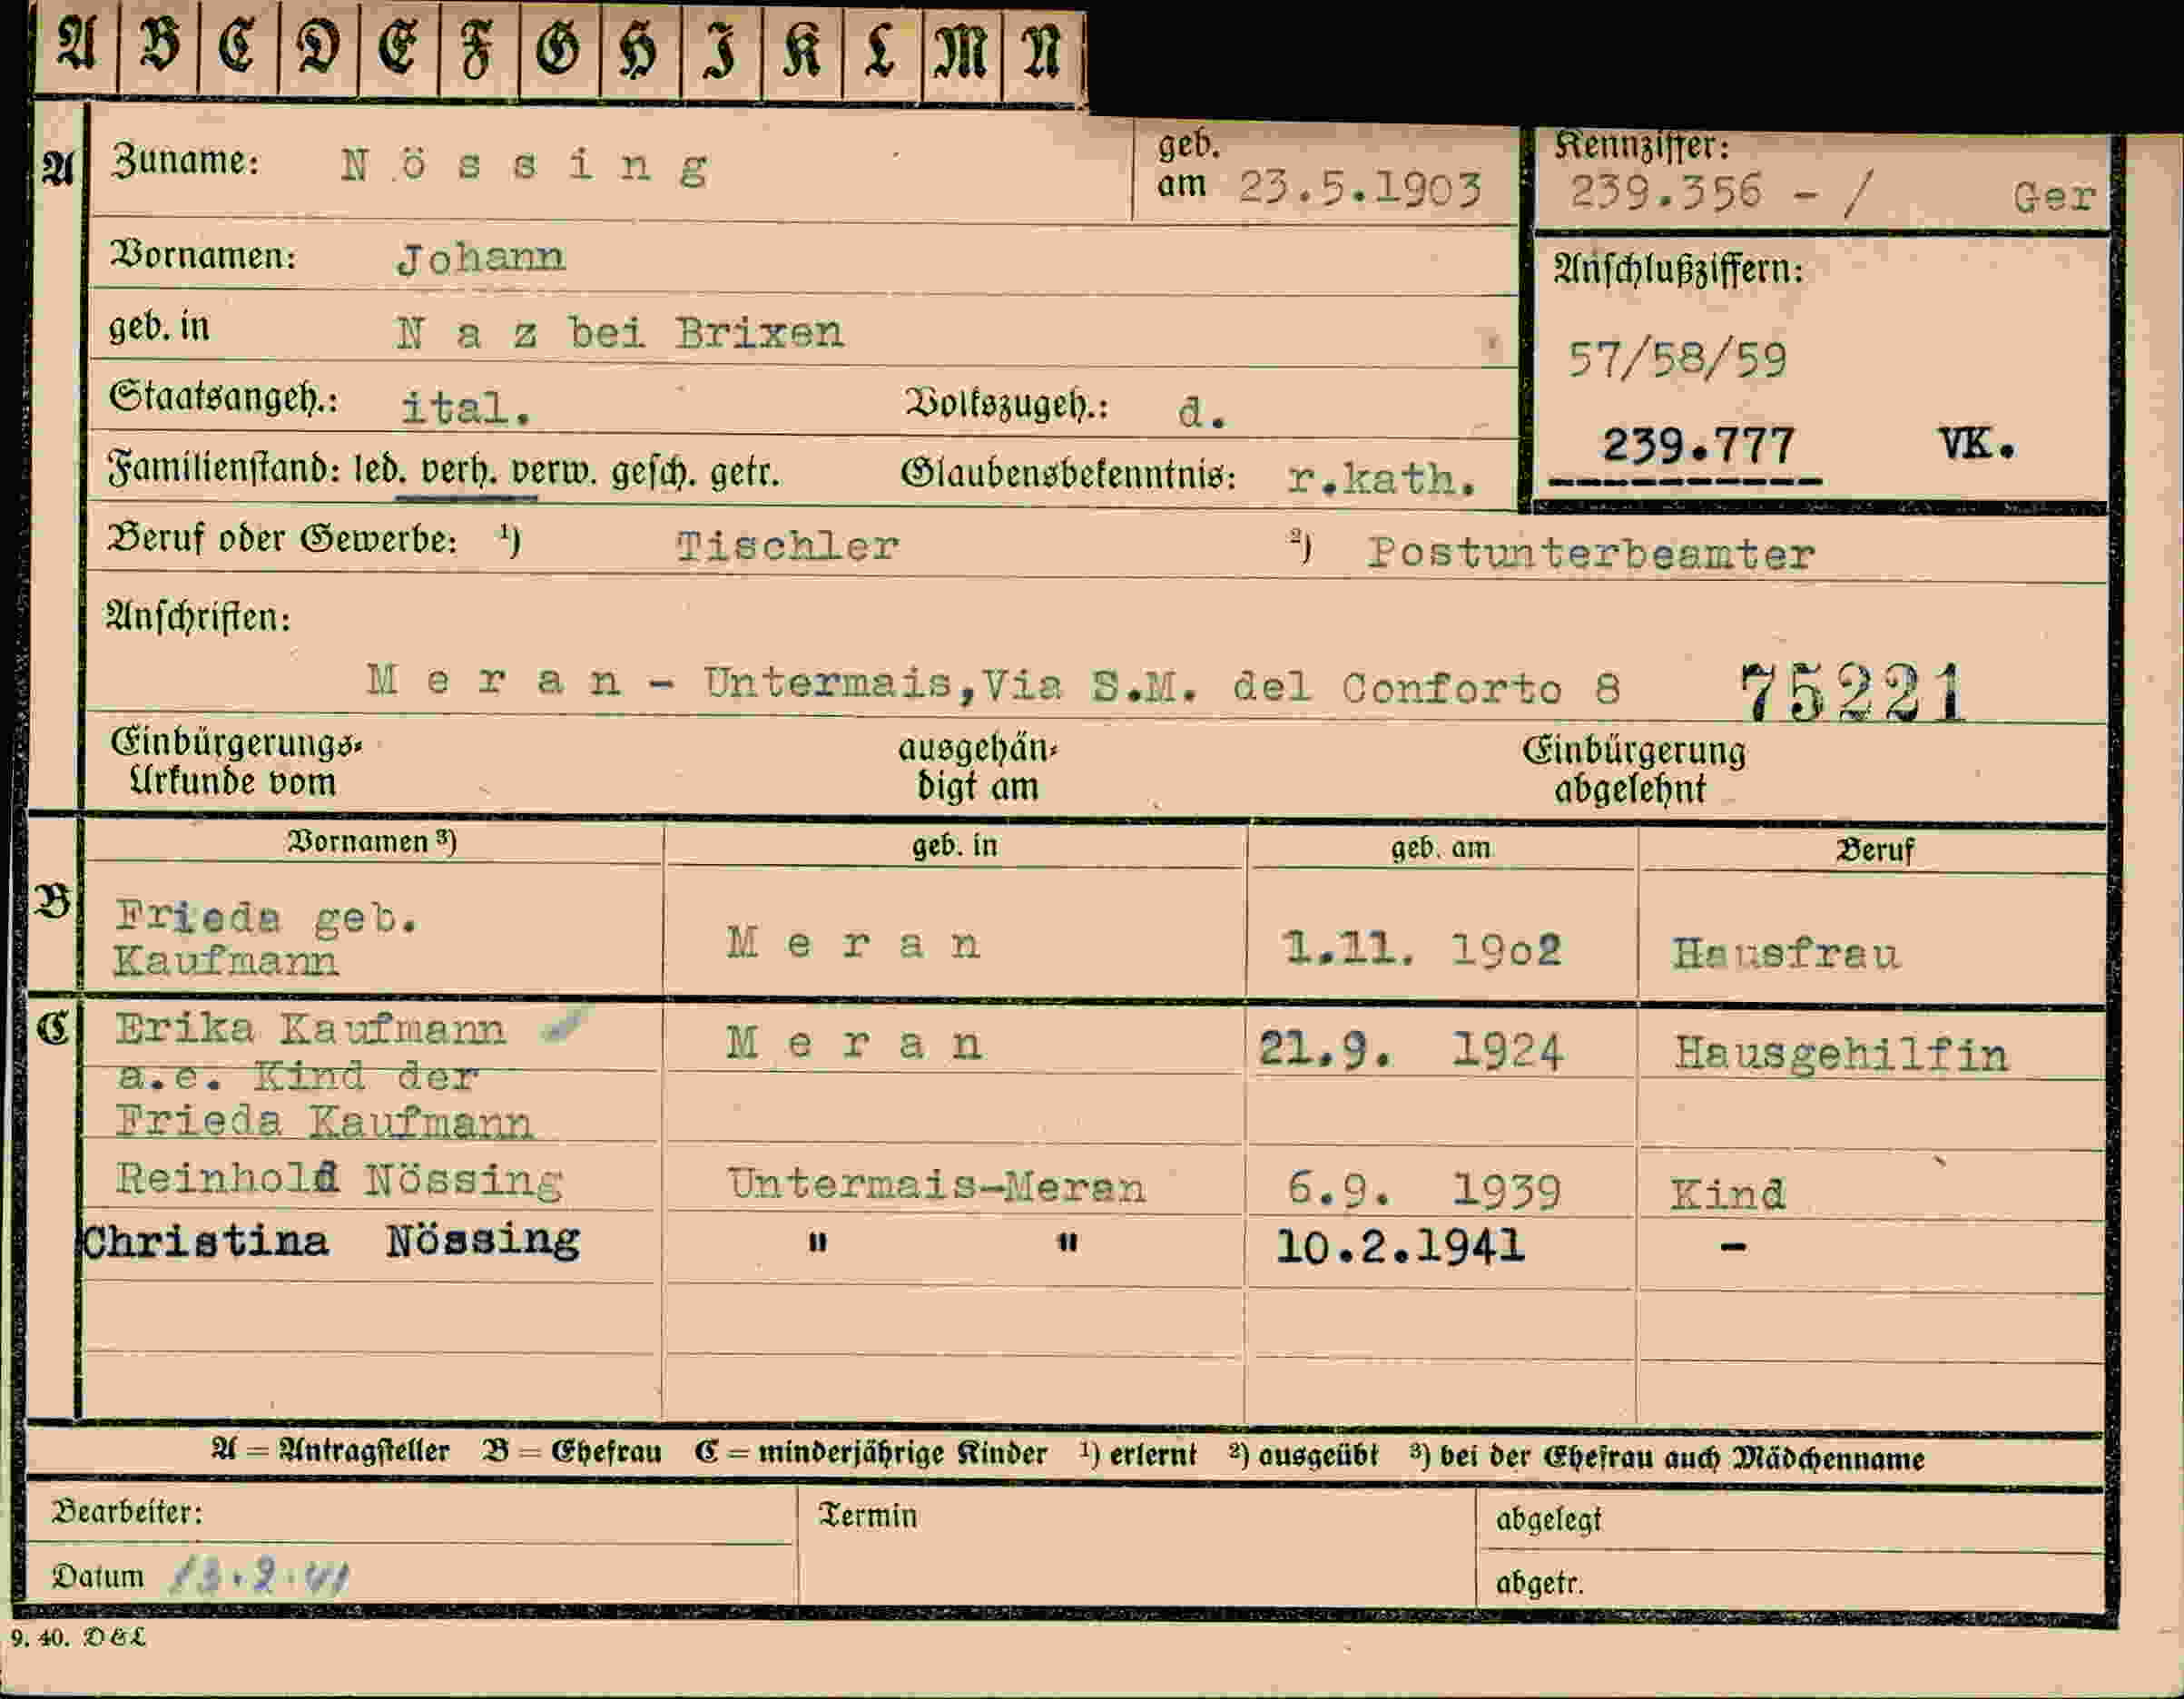 A B C D E F G H I K L M N
A Zuname: N ö s s i n g geb. am 23.5.1903
Kennziffer:
239.356 - / Ger
Vornamen: Johann
Anschlußziffern:
geb. in N a z bei Brixen
57/58/59
Staatsangeh.: ital. Volkszugeh.: d.
239.777 VK.
Familienstand: led. verh. verw. gesch. getr. Glaubensbekenntnis: r.kath.
Beruf oder Gewerbe: ¹) Tischler ²) Postunterbeamter
Anschriften:
M e r a n - Untermais,Via S.M. del Conforto 8 75221
Einbürgerungs- ausgehän- Einbürgerung
Urkunde vom digt am abgelehnt
Vornamen ³) geb. in geb. am Beruf
B Frieda geb.
Kaufmann M e r a n 1.11. 19o2 Hausfrau
C Erika Kaufmann M e r a n 21.9. 1924 Hausgehilfin
a.e. Kind der
Frieda Kaufmann
Reinhold Nössing Untermais-Meran 6.9. 1939 Kind
Christina Nössing " " 10.2.1941 -
A = Antragsteller B = Ehefrau C = minderjährige Kinder ¹) erlernt ²) ausgeübt ³) bei der Ehefrau auch Mädchenname
Bearbeiter: Termin abgelegt
Datum 13.2.41 abgetr.
9. 40. D&L